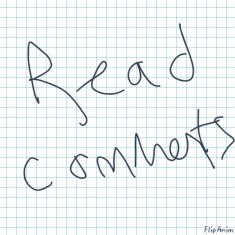 Read
comments
FlipAnim